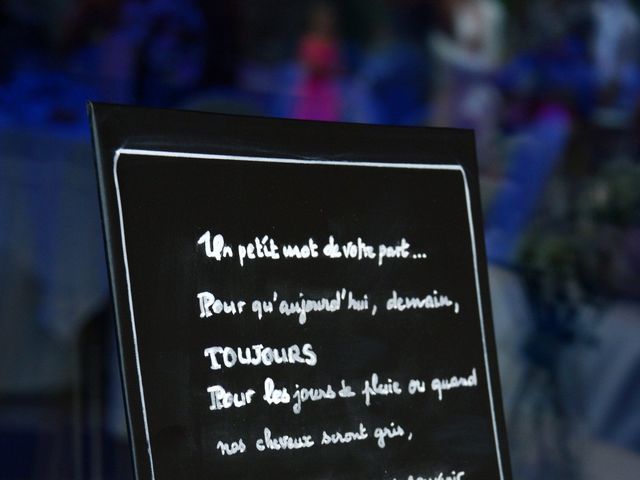 Un petit mot de votre part...
Pour qu'aujourd'hui, demain,
TOUJOURS
Pour les jours de pluie ou quand
nos cheveux seront gris,